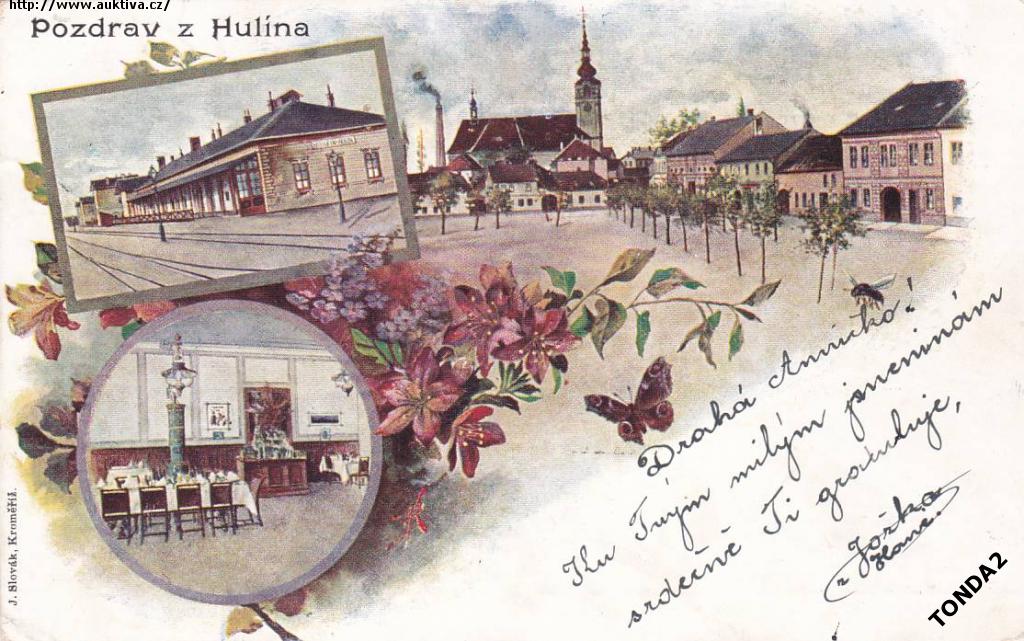 http://www.auktiva.cz/
Pozdrav z Hulína
Drahá Aničko!
Ku Tvým milým jmeninám
srdečně Ti gratuluje,
Joška
J. Slovák, Kroměříž.
TONDA2